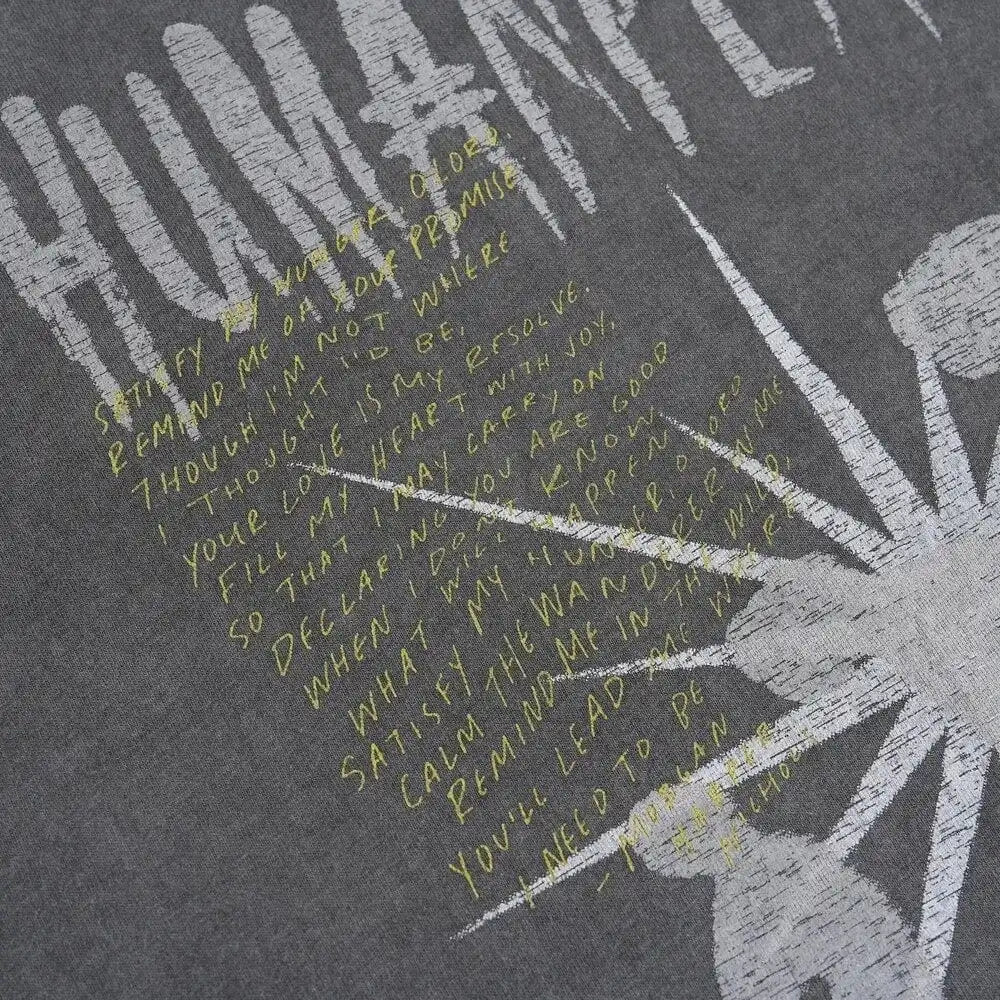 HUMAN
SATISFY MY HUNGER, O LORD.
REMIND ME OF YOUR PROMISE
THOUGH I'M NOT WHERE
I THOUGHT I'D BE,
YOUR LOVE IS MY RESOLVE.
FILL MY HEART WITH JOY,
SO THAT I MAY CARRY ON
DECLARING YOU ARE GOOD
WHEN I DON'T KNOW
WHAT WILL HAPPEN.
SATISFY MY HUNGER, O LORD
CALM THE WANDERER IN ME
REMIND ME IN THE WILD,
YOU'LL LEAD ME WHERE
I NEED TO BE
- MORGAN
HARPER
NICHOLS